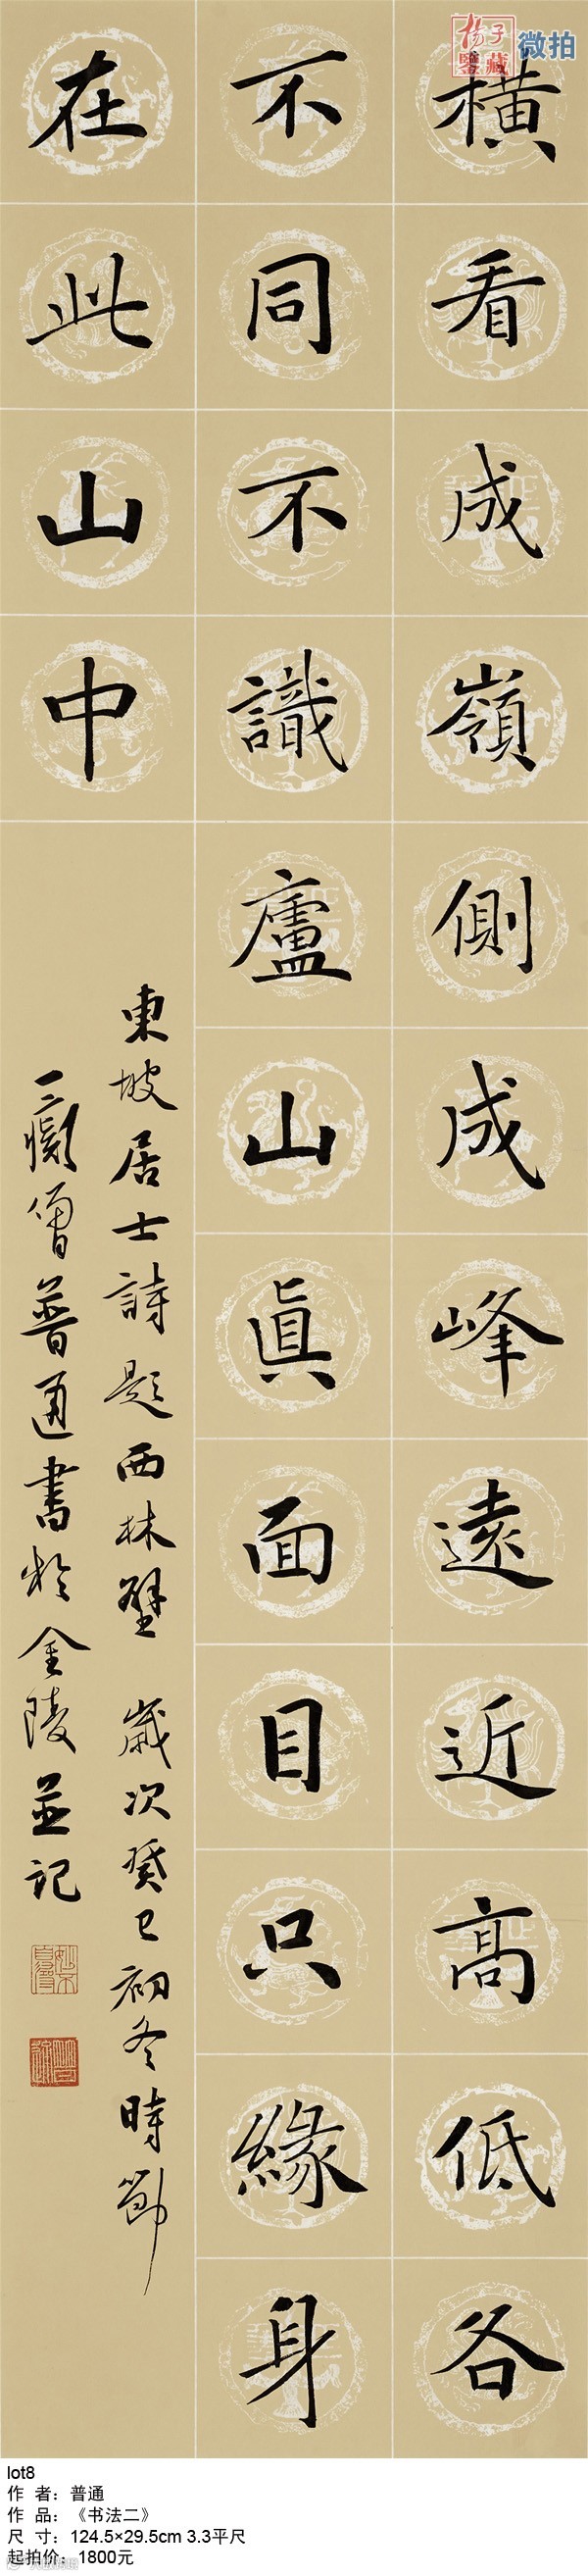 楊子鑒藏
微拍
橫看成嶺側成峰遠近高低各
不同不識廬山眞面目只緣身
在此山中
東坡居士詩題西林壁 歲次癸巳初冬時節
一癡僧普通書於金陵並記
lot8
作 者：普通
作 品：《书法二》
尺 寸：124.5×29.5cm 3.3平尺
起拍价：1800元